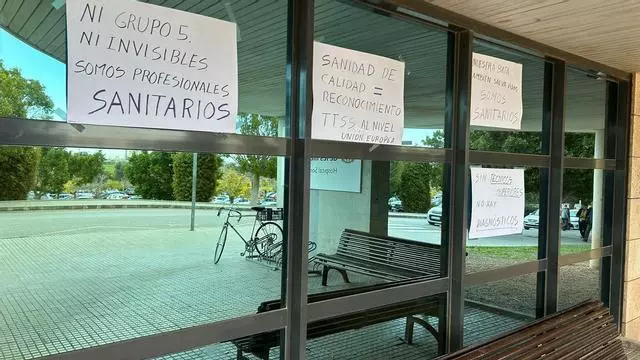 NI GRUPO 5.
NI INVISIBLES
SOMOS PROFESIONALES
SANITARIOS
SANIDAD DE
CALIDAD =
RECONOCIMIENTO
TTSS. AL NIVEL
UNION EUROPEA
NUESTRA BATA
TAMBIÉN SALVA VIDAS
SOMOS
SANITARIOS
SIN TÉCNICOS
SUPERIORES
NO HAY
DIAGNÓSTICOS